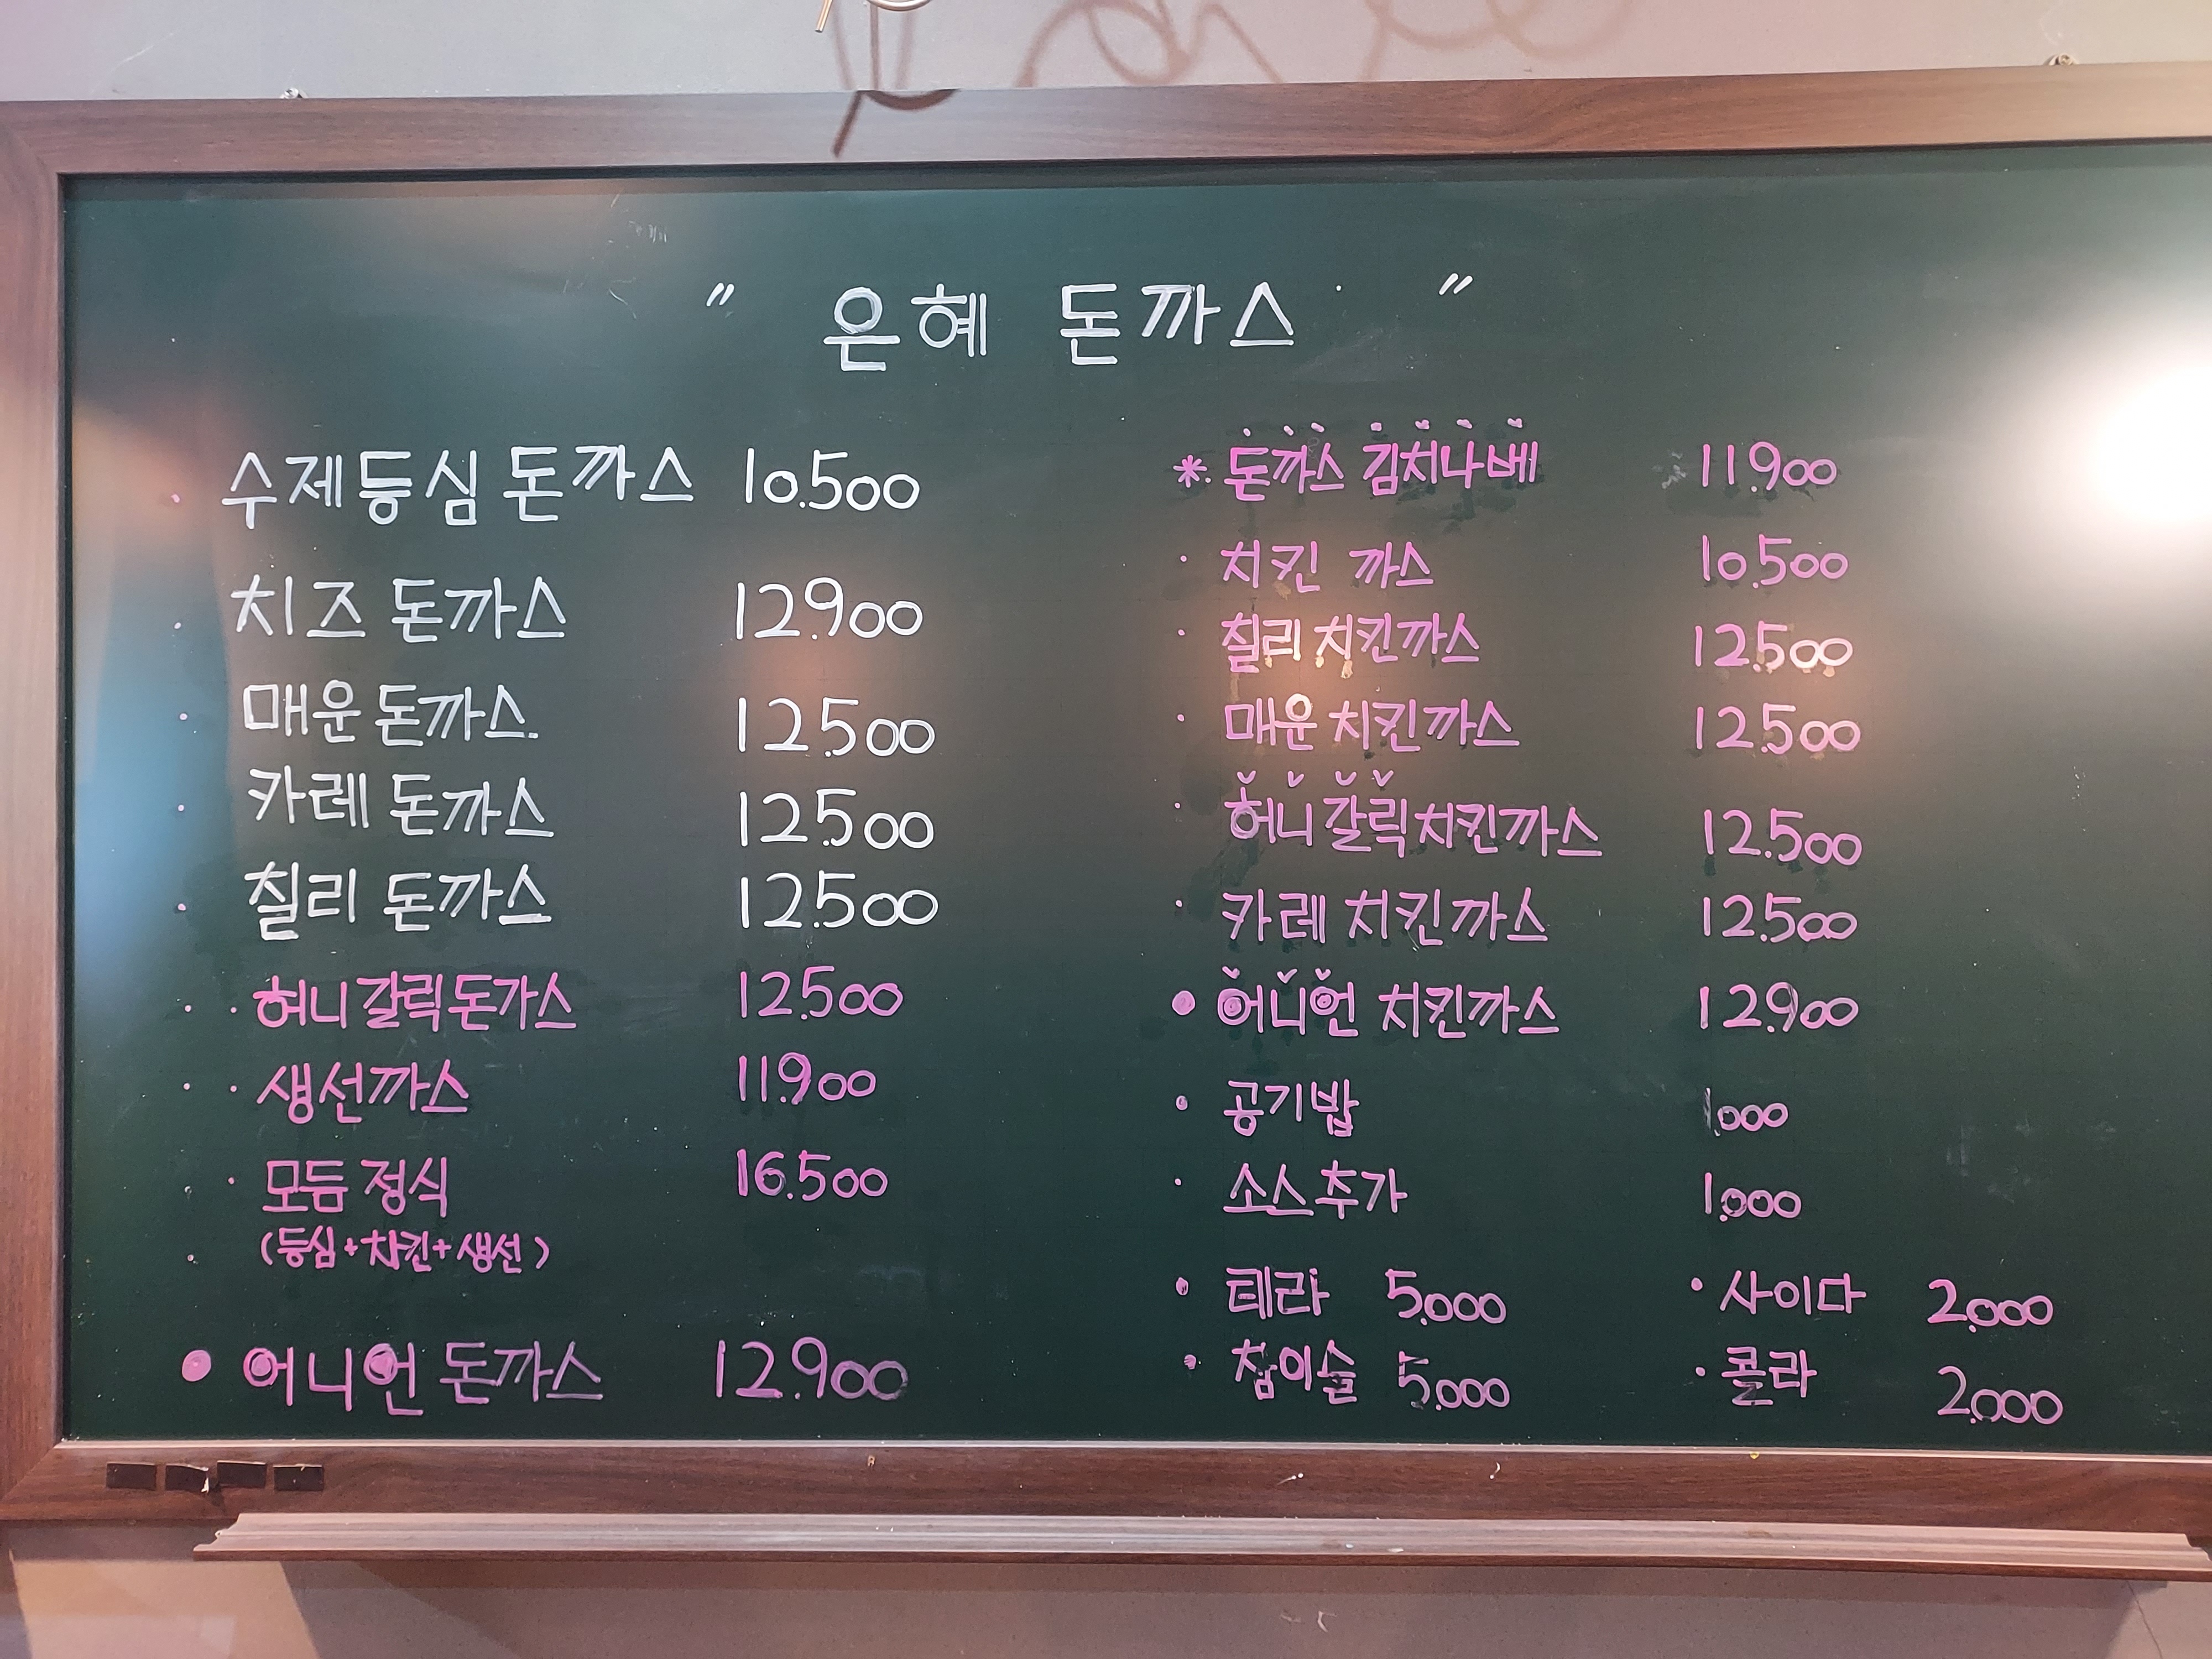 " 은혜 돈까스 "
· 수제등심 돈까스 10.500
· 치즈 돈까스 12.900
· 매운 돈까스. 12.500
· 카레 돈까스 12.500
· 칠리 돈까스 12.500
· · 허니갈릭돈가스 12.500
· · 생선까스 11.900
· 모듬 정식 16.500
(등심+치킨+생선)
• 어니언 돈까스 12.900
*. 돈까스 김치나베 11.900
· 치킨 까스 10.500
· 칠리 치킨까스 12.500
· 매운 치킨까스 12.500
· 허니갈릭치킨까스 12.500
· 카레 치킨까스 12.500
• 어니언 치킨까스 12.900
• 공기밥 1.000
· 소스추가 1.000
• 테라 5.000 • 사이다 2.000
• 참이슬 5.000 · 콜라 2.000